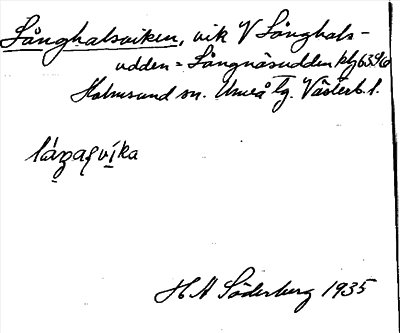 Långhalsviken, vik V Långhals-
udden = Långnäsudden
Holmsund sn. Umeå tg. Västerb. l.
H A Söderberg 1935